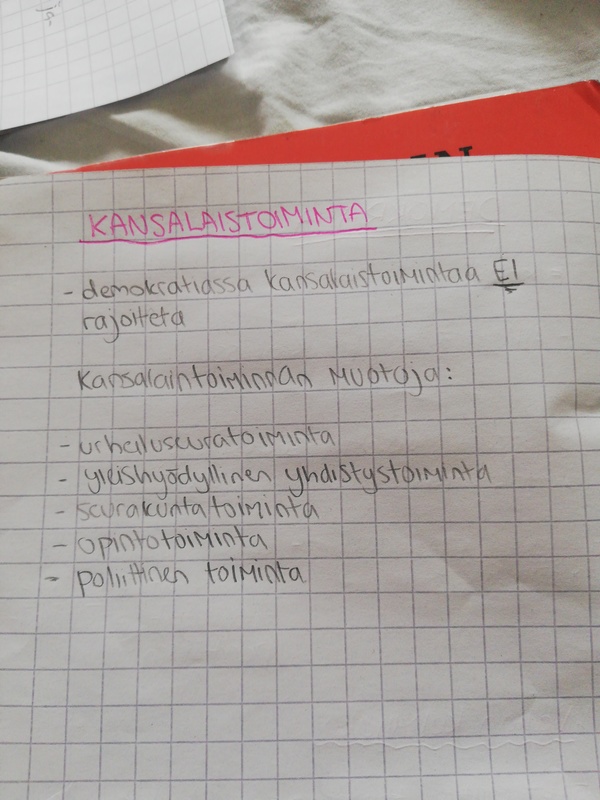 KANSALAISTOIMINTA
- demokratiassa kansalaistoimintaa EI
rajoiteta
Kansalaintoiminnan muotoja:
- urheiluseuratoiminta
- yleishyödyllinen yhdistystoiminta
- seurakuntatoiminta
- opintotoiminta
- poliittinen toiminta